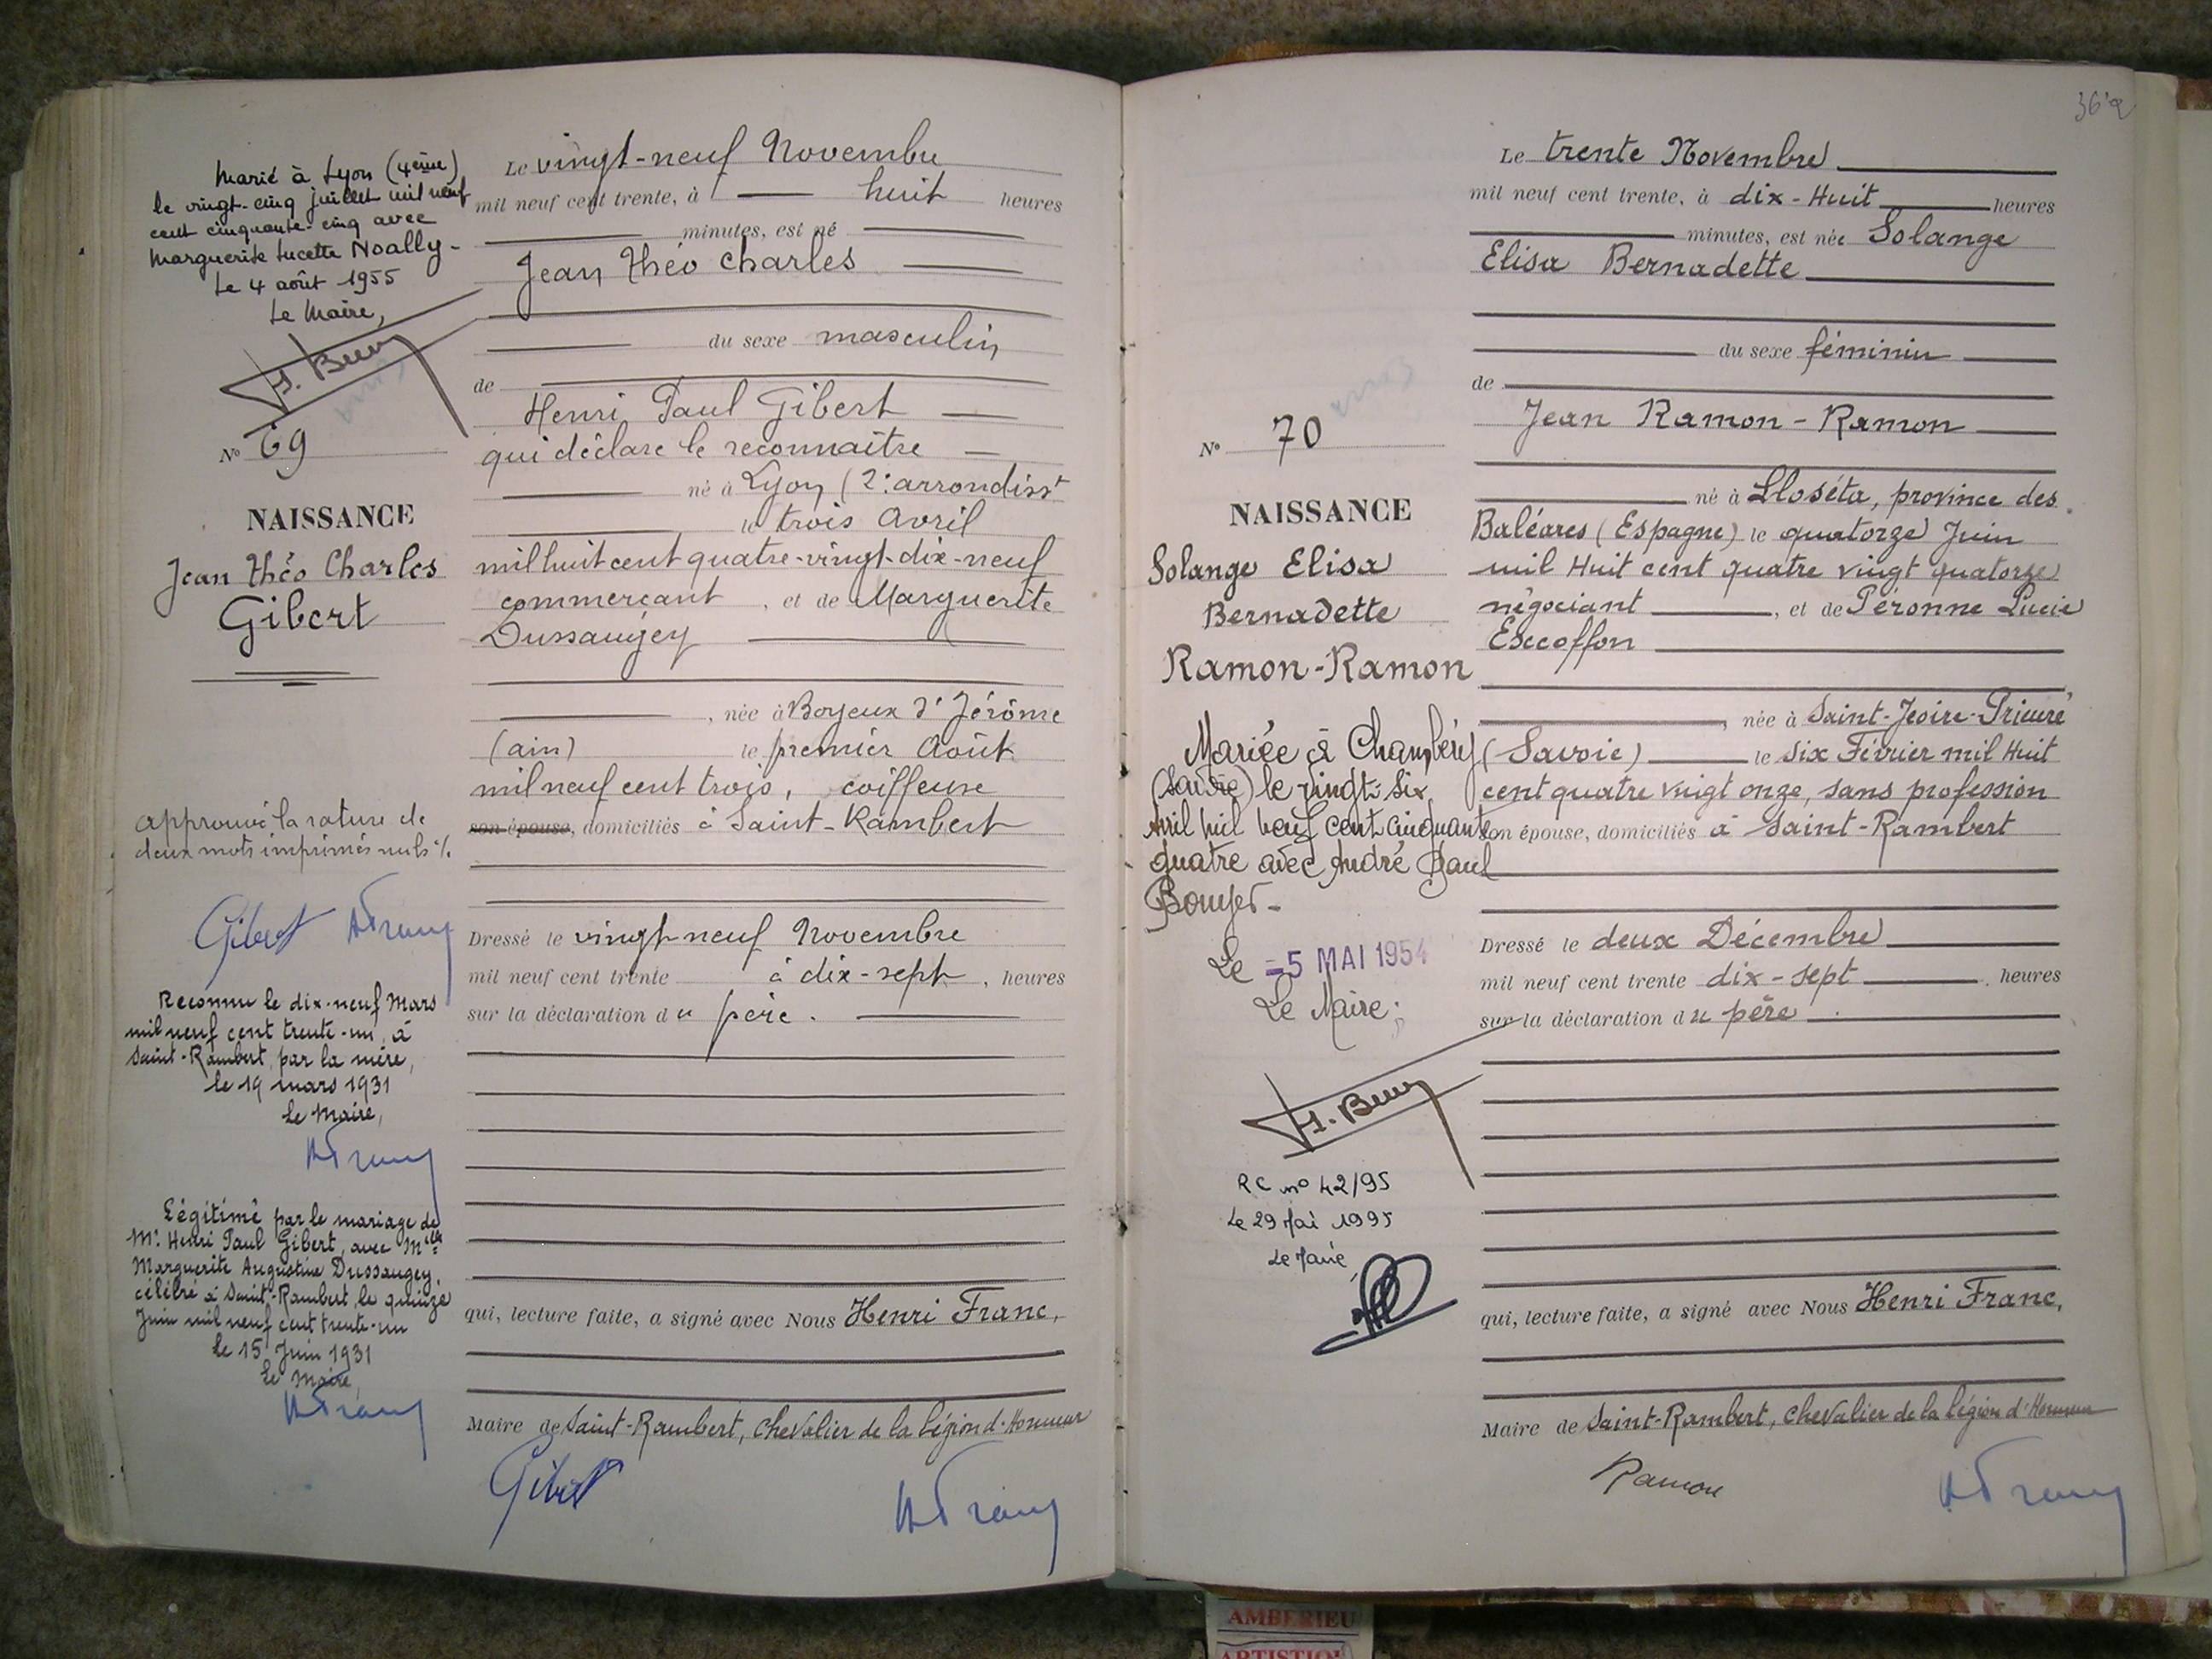 Marié à Lyon (4ème)
le vingt-cinq juillet mil neuf
cent cinquante-cinq avec
Marguerite Lucette Noally -
Le 4 août 1955
Le Maire,
N° 69
NAISSANCE
Jean Théo Charles
Gibert
approuvé la rature de
deux mots imprimés nuls %.
Gibert HFranc
Reconnu le dix-neuf Mars
mil neuf cent trente-un, à
Saint-Rambert, par la mère,
le 19 mars 1931
Le Maire,
HFranc
Légitimé par le mariage de
Mr. Henri Paul Gibert, avec Melle
Marguerite Augustine Dussaugey,
célébré à Saint-Rambert, le quinze
Juin mil neuf cent trente-un
le 15 Juin 1931
Le Maire,
HFranc
Le vingt-neuf Novembre
mil neuf cent trente, à huit heures
minutes, est né
Jean Théo Charles
du sexe masculin
de
Henri Paul Gibert
qui déclare le reconnaître
né à Lyon (2e arrondisst
le trois Avril
mil huit cent quatre-vingt-dix-neuf
commerçant, et de Marguerite
Dussaugey
, née à Boyeux St Jérôme
(ain) le premier Août
mil neuf cent trois, coiffeuse
son épouse, domiciliés à Saint-Rambert
Dressé le vingt-neuf Novembre
mil neuf cent trente à dix-sept, heures
sur la déclaration du père.
qui, lecture faite, a signé avec Nous Henri Franc,
Maire de Saint-Rambert, chevalier de la Légion d'Honneur
Gibert HFranc
N° 70
NAISSANCE
Solange Elisa
Bernadette
Ramon-Ramon
Mariée à Chambéry
(Savoie) le vingt-six
Avril mil neuf cent cinquante
quatre avec André Paul
Le -5 MAI 1954
Le Maire;
RC n° 42/95
Le 29 Mai 1995
Le Maire,
Le trente Novembre
mil neuf cent trente, à dix-Huit heures
minutes, est née Solange
Elisa Bernadette
du sexe féminin
de
Jean Ramon-Ramon
né à Lloséta, province des
Baléares (Espagne) le quatorze Juin
mil Huit cent quatre vingt quatorze
négociant, et de Péronne Lucie
Exccoffon
, née à Saint-Jeoire-Prieuré
(Savoie) le six Février mil Huit
cent quatre vingt onze, sans profession
son épouse, domiciliés à Saint-Rambert
Dressé le deux Décembre
mil neuf cent trente dix-sept heures
sur la déclaration du père.
qui, lecture faite, a signé avec Nous Henri Franc,
Maire de Saint-Rambert, chevalier de la Légion d'Honneur
Ramon HFranc
AMBERIEU